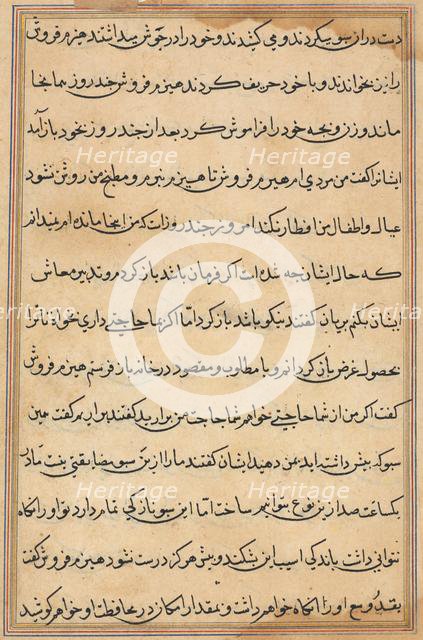 دست دراز سبو میکردند و می کشیدند و خود را در جوش میداشتند هیزم فروش
را نیز بخواندند و با خود حریف کردند هیزم فروش چند روز همانجا
ماند و زن و بچه خود را فراموش کرد بعد از چند روز بخود باز آمد
ایشانرا گفت من مردی ام هیزم فروش تا هیزم نبرم و مطبخ من روشن نشود
عیال و اطفال من افطار نکنند امروز چند روزست که من اینجا مانده ام نمیدانم
که حال ایشان چه شده است اگر فرمان باشد باز کردم و تدبیر معاش
ایشان بکنم پریان گفتند نیکو باشد باز گرد اما اگر بما حاجتی داری بخواه تا ترا
بحصول غرض باز گردانیم و با مطلوب و مقصود در خانه باز فرستیم هیزم فروش
گفت اگر من از شما حاجتی خواهم شما حاجت من برارید گفتند براریم گفت همین
سبو که پیش داشته اید بمن دهید ایشان گفتند ما را ازین سبو مضایقتی نیست ما در
یکساعت صد ازین نوع بتوانیم ساخت اما این سبو نازکی تمام دارد تو او را نگاه
نتوانی داشت باندکی آسیب این بشکند و بیش هرگز درست نشود هیزم فروش گفت
بقدر وسع او را نگاه خواهم داشت و بمقدار امکان در محافظت او خواهم کوشید
Heritage